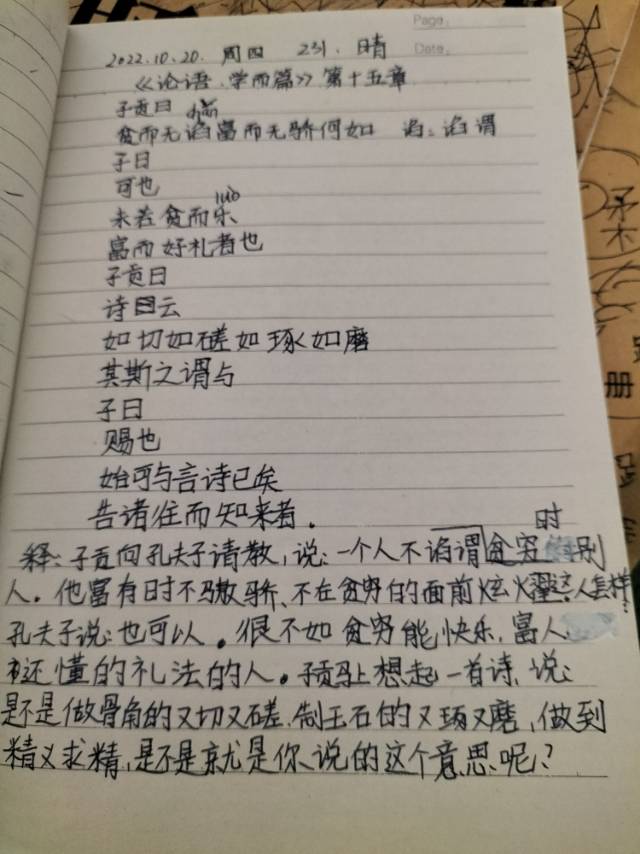 Page.
Date.
2022.10.20. 周四 231. 晴
《论语.学而篇》第十五章
子贡曰
贫而无谄富而无骄何如 谄：谄谓
子曰
可也
未若贫而乐
富而好礼者也
子贡曰
诗云
如切如磋如琢如磨
其斯之谓与
子曰
赐也
始可与言诗已矣
告诸往而知来者.
时
释：子贡向孔夫子请教，说：一个人不谄谓贫穷别
人。他富有日时不骄、不在贫穷的面前炫耀这人怎样？
孔夫子说：也可以。很不如贫穷能快乐，富人
还懂的礼法的人。子贡马上想起一首诗，说：
是不是做骨角的又切又磋.制玉石的又琢又磨，做到
精义求精，是不是就是你说的这个意思呢？
矛
木
册